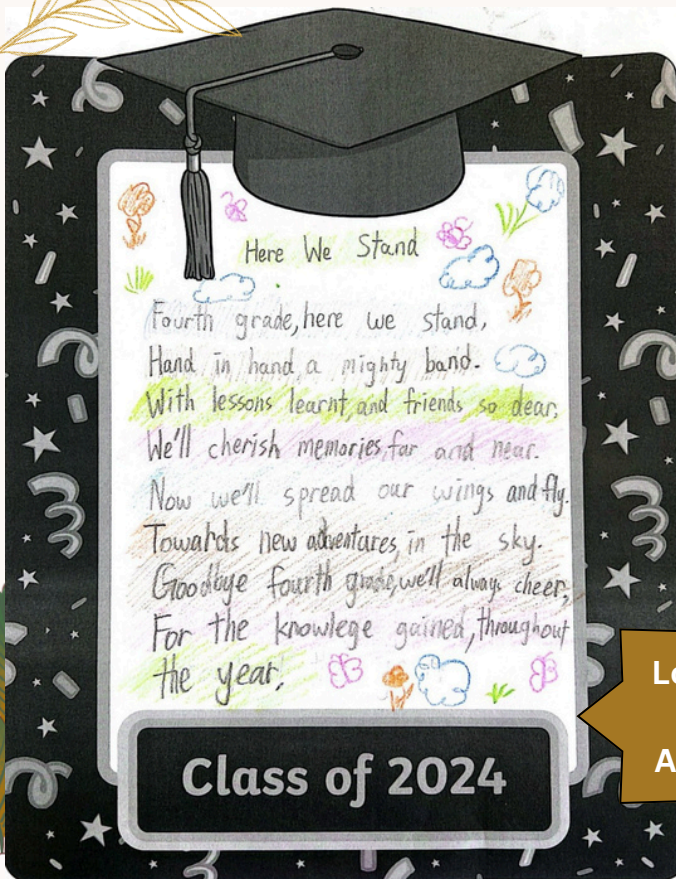 Here We Stand
Fourth grade, here we stand,
Hand in hand, a mighty band.
With lessons learnt, and friends so dear,
We'll cherish memories, far and near.
Now we'll spread our wings and fly.
Towards new adventures, in the sky.
Goodbye fourth grade, we'll always cheer,
For the knowlege gained, throughout
the year!
Class of 2024